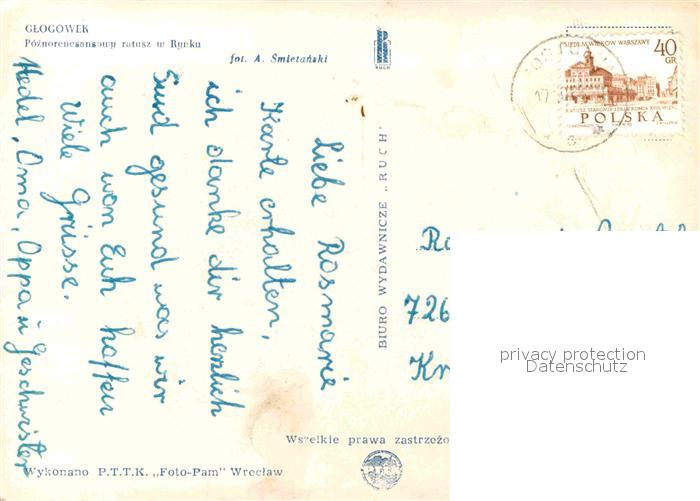 GŁOGÓWEK
Późnorenesansowy ratusz w Rynku
fot. A. Śmietański
RUCH
SIEDEM WIEKÓW WARSZAWY
40
GR
POLSKA
Liebe Rosmarie
Karte erhalten,
ich danke dir herzlich
Sind gesund was wir
auch von Euch hoffen
Viele Grüsse.
Hedel, Oma, Oppa u Geschwister
BIURO WYDAWNICZE „RUCH"
726
Kr
privacy protection
Datenschutz
Wszelkie prawa zastrzeżo
Wykonano P.T.T.K. „Foto-Pam" Wrocław